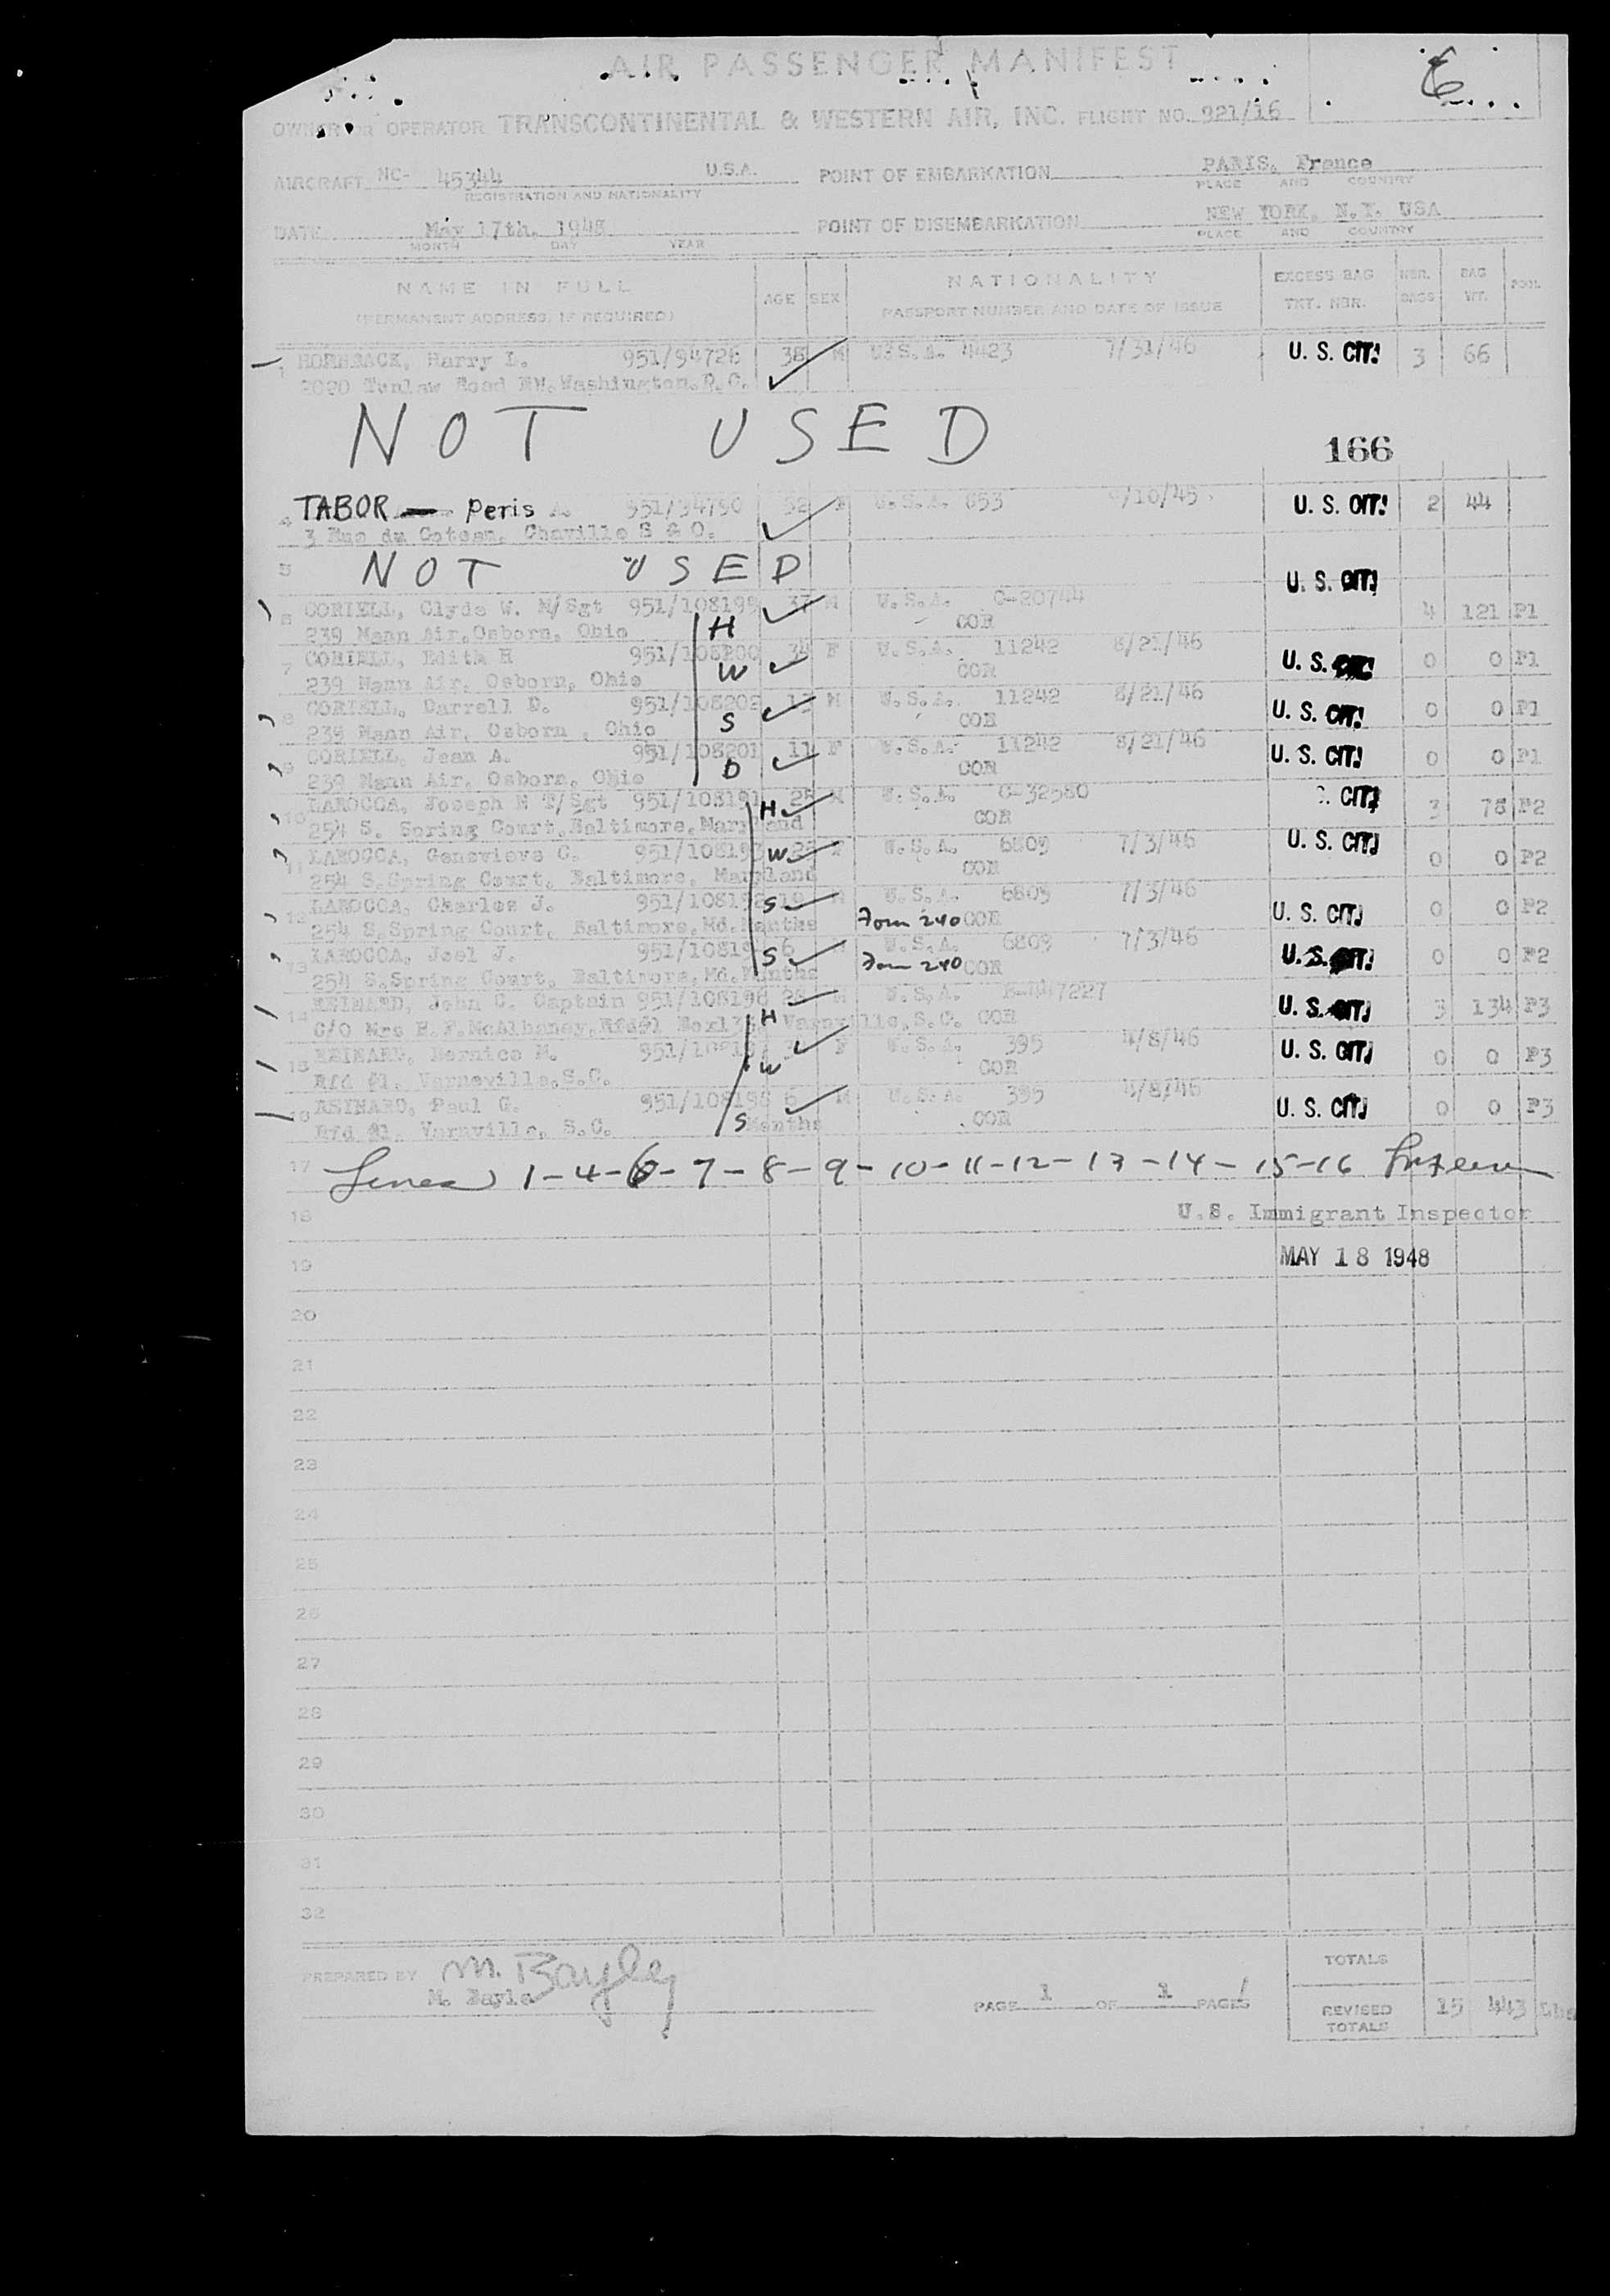 AIR PASSENGER MANIFEST
OWNER OR OPERATOR TRANSCONTINENTAL & WESTERN AIR, INC. FLIGHT NO. 921/16
AIRCRAFT NC- 45344 U.S.A. POINT OF EMBARKATION PARIS, France
REGISTRATION AND NATIONALITY PLACE AND COUNTRY
DATE May 17th, 1948 POINT OF DISEMBARKATION NEW YORK, N.Y. USA
MONTH DAY YEAR PLACE AND COUNTRY
NAME IN FULL (PERMANENT ADDRESS, IF REQUIRED) AGE SEX NATIONALITY PASSPORT NUMBER AND DATE OF ISSUE EXCESS BAG TKT. NBR. NBR. BAGS BAG WT. POOL
1 HORNBACK, Harry L. 951/94726 38 M U.S.A. 4423 7/31/46 U. S. CIT. 3 66
2020 Tunlaw Road NW. Washington. D.C.
NOT USED
166
4 TABOR — Peris A. 951/94790 52 F U.S.A. 653 /16/45 U. S. CIT. 2 44
3 Rue du Coteau, Chaville S & O.
5 NOT USED
U. S. CIT.
6 CORIELL, Clyde W. M/Sgt 951/108199 37 M U.S.A. C-20744 4 121 P1
239 Mann Air, Osborn, Ohio H COR
7 CORIELL, Edith H 951/108200 34 F U.S.A. 11242 8/21/46 U. S. CIT. 0 0 P1
239 Mann Air, Osborn, Ohio W COR
8 CORIELL, Darrell D. 951/108202 13 M U.S.A. 11242 8/21/46 U. S. CIT. 0 0 P1
239 Mann Air, Osborn, Ohio S COR
9 CORIELL, Jean A. 951/108201 11 F U.S.A. 11242 8/21/46 U. S. CIT. 0 0 P1
239 Mann Air, Osborn, Ohio D COR
10 LAROCCA, Joseph M T/Sgt 951/108191 28 M U.S.A. C-32580 CIT. 3 78 P2
254 S. Spring Court, Baltimore, Maryland H COR
11 LAROCCA, Genevieve C. 951/108193 W F U.S.A. 6809 7/3/46 U. S. CIT. 0 0 P2
254 S. Spring Court, Baltimore, Maryland COR
12 LAROCCA, Charles J. 951/108192 19 S M U.S.A. 6809 7/3/46 U. S. CIT. 0 0 P2
254 S. Spring Court, Baltimore, Md. Months Form 240 COR
13 LAROCCA, Joel J. 951/10819 6 S U.S.A. 6809 7/3/46 U. S. CIT. 0 0 P2
254 S. Spring Court, Baltimore, Md. Months Form 240 COR
14 REINARD, John C. Captain 951/108196 28 M U.S.A. 47227 U. S. CIT. 3 134 P3
C/O Mrs H.F. McAlhaney, Rfd#1 Varnville, S.C. H COR
15 REINARD, Bernice M. 951/10819 F U.S.A. 395 4/8/46 U. S. CIT. 0 0 P3
Rfd #1, Varneville, S.C. W COR
16 REINARD, Paul G. 951/108198 6 M U.S.A. 395 4/8/46 U. S. CIT. 0 0 P3
Rfd #1, Varnville, S.C. S Months COR
17 Lines 1-4-6-7-8-9-10-11-12-13-14-15-16
18 U.S. Immigrant Inspector
19 MAY 18 1948
20
21
22
23
24
25
26
27
28
29
30
31
32
PREPARED BY M. Bayle TOTALS
M. Bayle PAGE 1 OF 1 PAGES REVISED TOTALS 15 443 Lbs